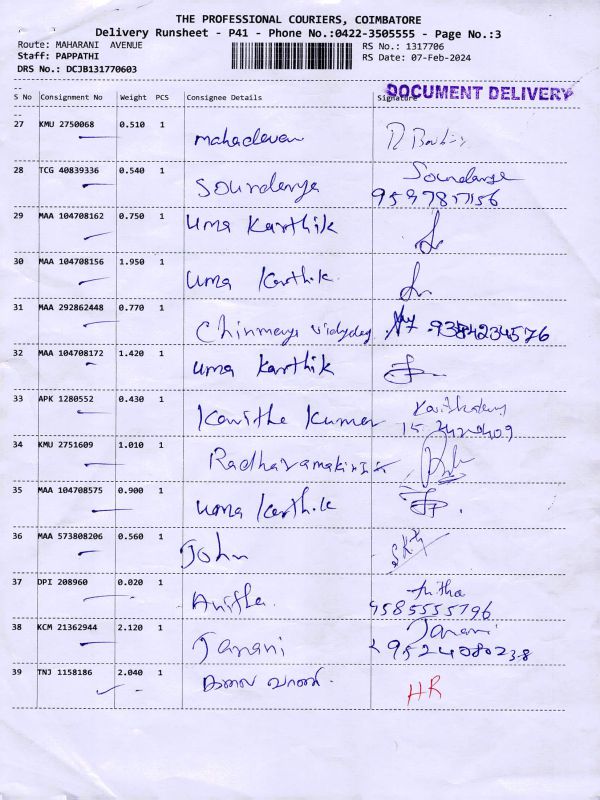 THE PROFESSIONAL COURIERS, COIMBATORE
Delivery Runsheet - P41 - Phone No.:0422-3505555 - Page No.:3
Route: MAHARANI AVENUE RS No.: 1317706
Staff: PAPPATHI RS Date: 07-Feb-2024
DRS No.: DCJB131770603
DOCUMENT DELIVERY
S No Consignment No Weight PCS Consignee Details Signature
27 KMU 2750068 0.510 1 mahadevan
28 TCG 40839336 0.540 1 Soundarya Soundarya
29 MAA 104708162 0.750 1 uma Karthik
30 MAA 104708156 1.950 1 uma Karthik.
31 MAA 292862448 0.770 1 Chinmaya
32 MAA 104708172 1.420 1 uma Karthik
33 APK 1280552 0.430 1 Kavitha Kumar
34 KMU 2751609 1.010 1
35 MAA 104708575 0.900 1 uma Karthik
36 MAA 573808206 0.560 1 John
37 DPI 208960 0.020 1 Anitha
9585555796
38 KCM 21362944 2.120 1 Janani Janani
9524080238
39 TNJ 1158186 2.040 1 HR